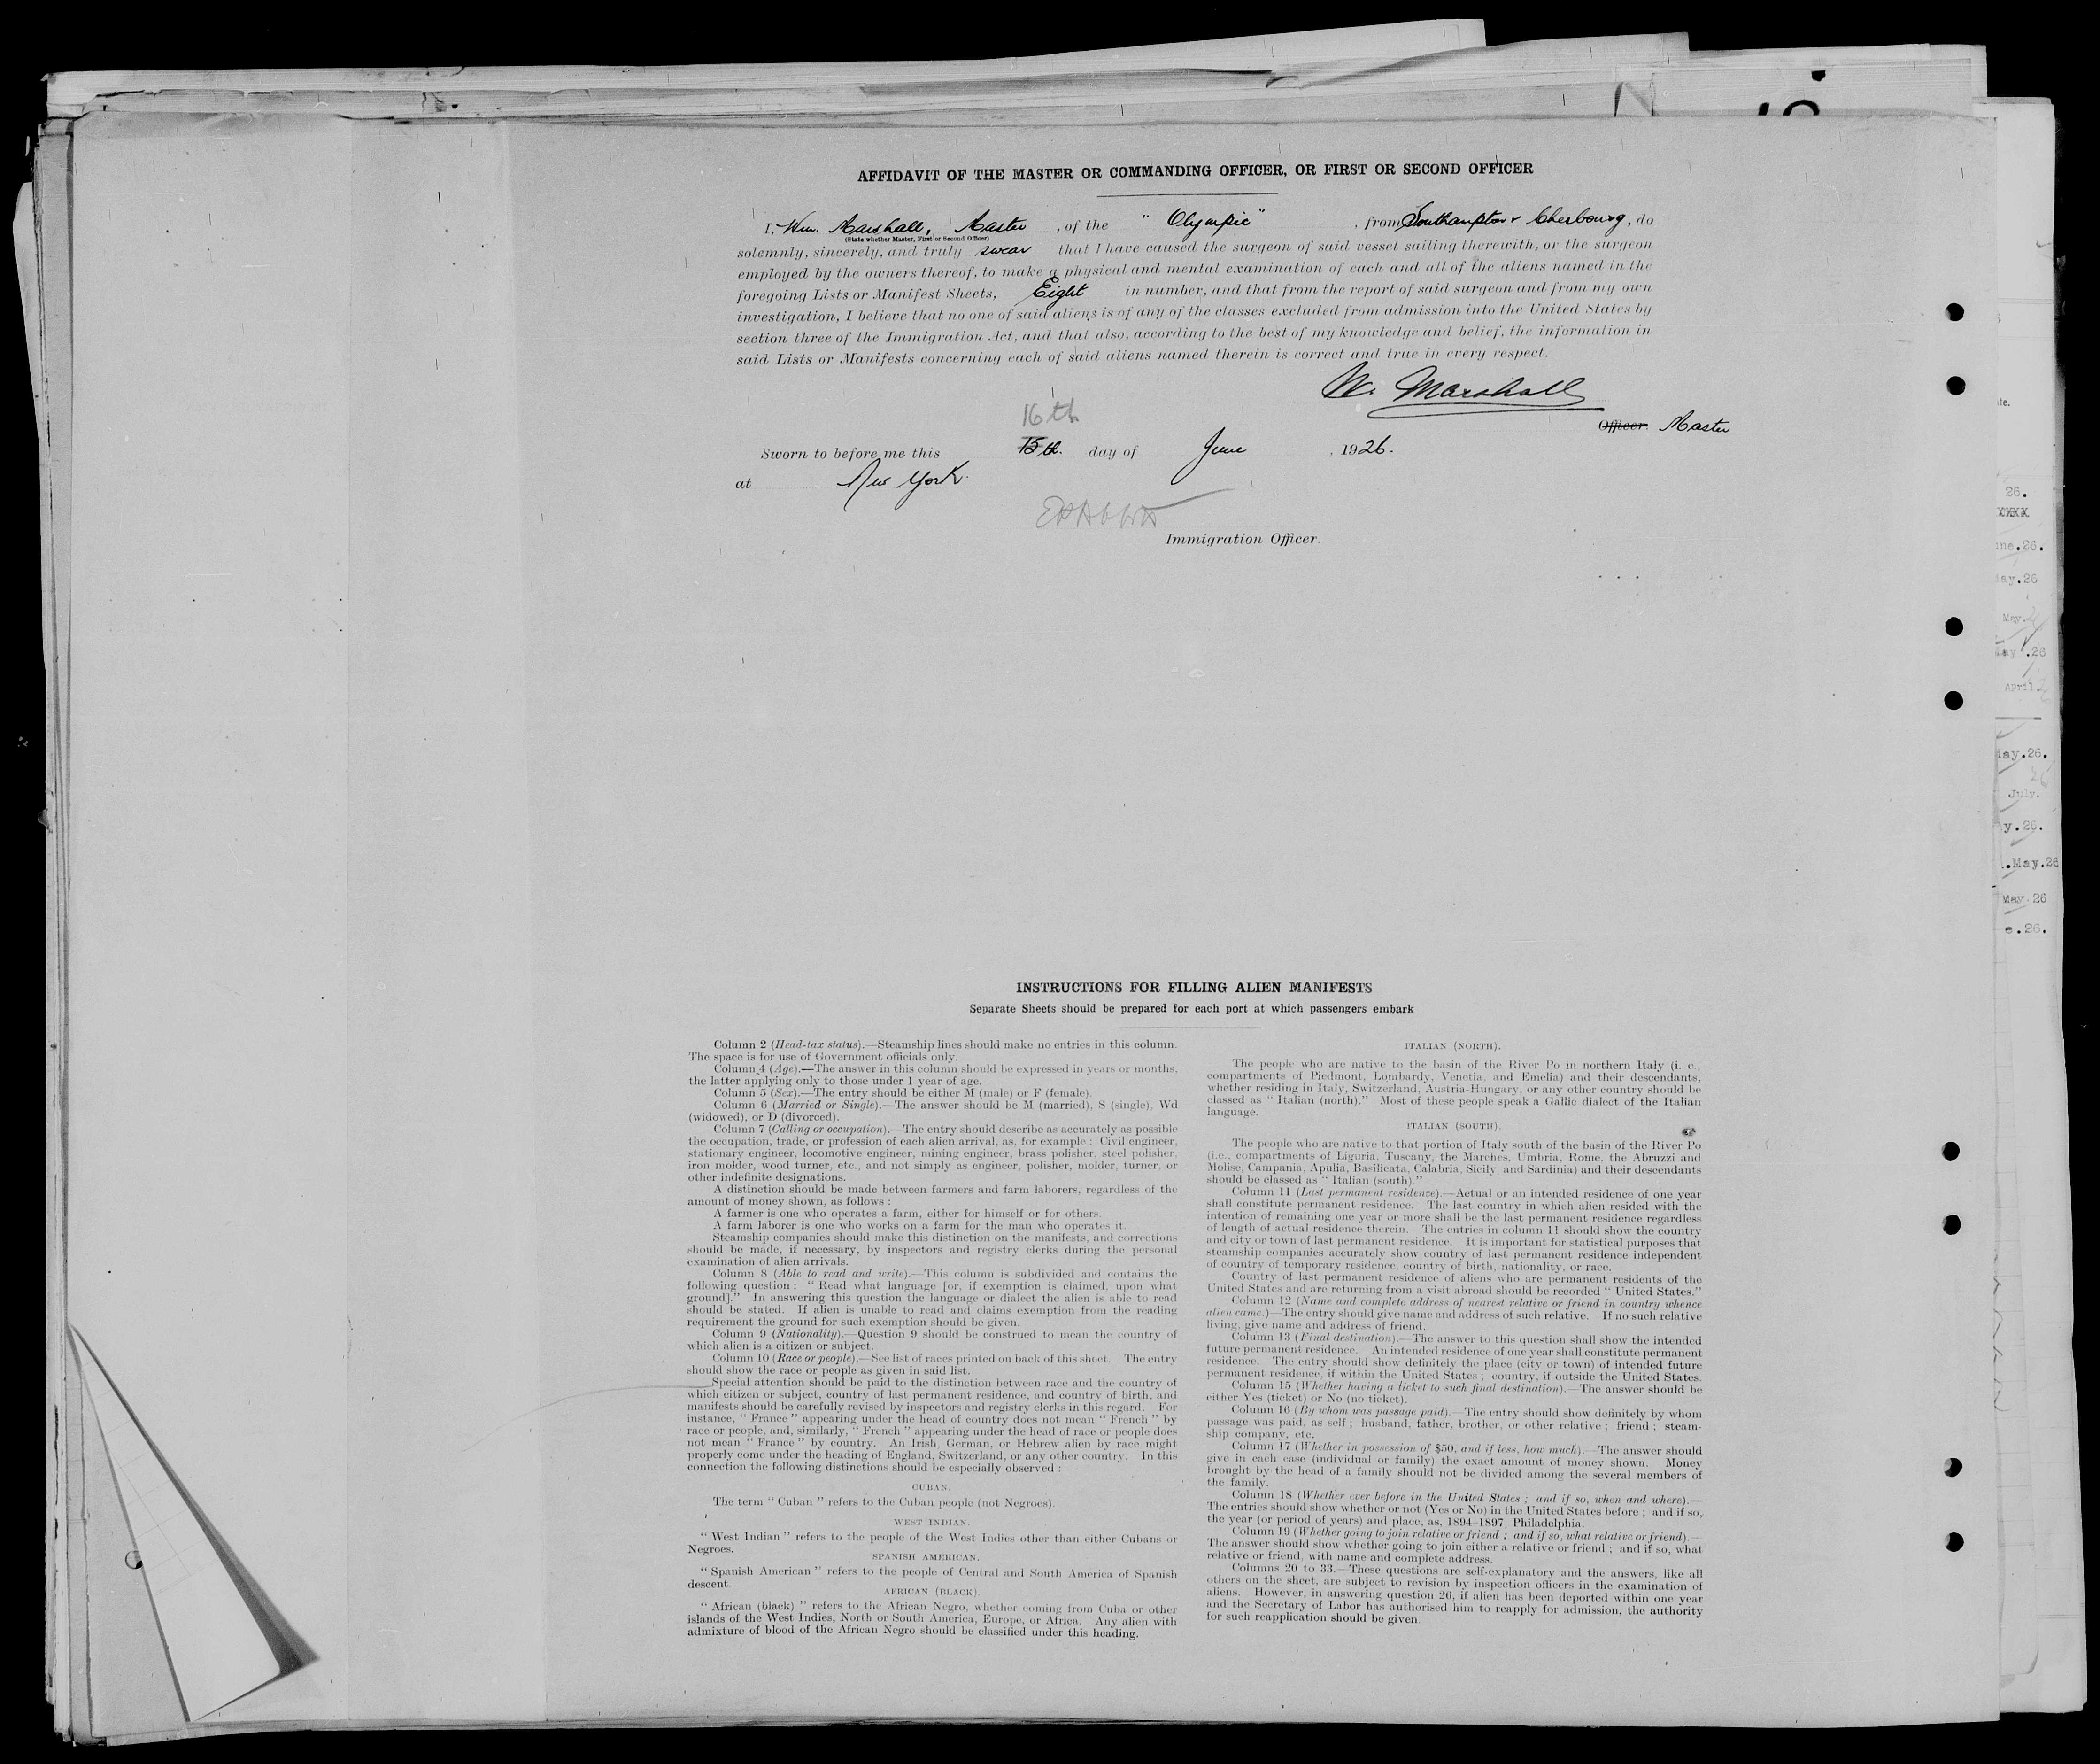 AFFIDAVIT OF THE MASTER OR COMMANDING OFFICER, OR FIRST OR SECOND OFFICER
I, Wm. Marshall, Master, of the "Olympic", from Southampton & Cherbourg, do
(State whether Master, First or Second Officer)
solemnly, sincerely, and truly swear that I have caused the surgeon of said vessel sailing therewith, or the surgeon
employed by the owners thereof, to make a physical and mental examination of each and all of the aliens named in the
foregoing Lists or Manifest Sheets, Eight in number, and that from the report of said surgeon and from my own
investigation, I believe that no one of said aliens is of any of the classes excluded from admission into the United States by
section three of the Immigration Act, and that also, according to the best of my knowledge and belief, the information in
said Lists or Manifests concerning each of said aliens named therein is correct and true in every respect.
W. Marshall
Officer. Master
16th
Sworn to before me this 15th. day of June, 1926.
at New York.
Immigration Officer.
INSTRUCTIONS FOR FILLING ALIEN MANIFESTS
Separate Sheets should be prepared for each port at which passengers embark
Column 2 (Head-tax status).—Steamship lines should make no entries in this column.
The space is for use of Government officials only.
Column 4 (Age).—The answer in this column should be expressed in years or months,
the latter applying only to those under 1 year of age.
Column 5 (Sex).—The entry should be either M (male) or F (female).
Column 6 (Married or Single).—The answer should be M (married), S (single), Wd
(widowed), or D (divorced).
Column 7 (Calling or occupation).—The entry should describe as accurately as possible
the occupation, trade, or profession of each alien arrival, as, for example : Civil engineer,
stationary engineer, locomotive engineer, mining engineer, brass polisher, steel polisher,
iron molder, wood turner, etc., and not simply as engineer, polisher, molder, turner, or
other indefinite designations.
A distinction should be made between farmers and farm laborers, regardless of the
amount of money shown, as follows :
A farmer is one who operates a farm, either for himself or for others.
A farm laborer is one who works on a farm for the man who operates it.
Steamship companies should make this distinction on the manifests, and corrections
should be made, if necessary, by inspectors and registry clerks during the personal
examination of alien arrivals.
Column 8 (Able to read and write).—This column is subdivided and contains the
following question : " Read what language [or, if exemption is claimed, upon what
ground]." In answering this question the language or dialect the alien is able to read
should be stated. If alien is unable to read and claims exemption from the reading
requirement the ground for such exemption should be given.
Column 9 (Nationality).—Question 9 should be construed to mean the country of
which alien is a citizen or subject.
Column 10 (Race or people).—See list of races printed on back of this sheet. The entry
should show the race or people as given in said list.
Special attention should be paid to the distinction between race and the country of
which citizen or subject, country of last permanent residence, and country of birth, and
manifests should be carefully revised by inspectors and registry clerks in this regard. For
instance, " France " appearing under the head of country does not mean " French " by
race or people, and, similarly, " French " appearing under the head of race or people does
not mean " France " by country. An Irish, German, or Hebrew alien by race might
properly come under the heading of England, Switzerland, or any other country. In this
connection the following distinctions should be especially observed :
CUBAN.
The term " Cuban " refers to the Cuban people (not Negroes).
WEST INDIAN.
" West Indian " refers to the people of the West Indies other than either Cubans or
Negroes.
SPANISH AMERICAN.
" Spanish American " refers to the people of Central and South America of Spanish
descent.
AFRICAN (BLACK).
" African (black) " refers to the African Negro, whether coming from Cuba or other
islands of the West Indies, North or South America, Europe, or Africa. Any alien with
admixture of blood of the African Negro should be classified under this heading.
ITALIAN (NORTH).
The people who are native to the basin of the River Po in northern Italy (i. e.,
compartments of Piedmont, Lombardy, Venetia, and Emelia) and their descendants,
whether residing in Italy, Switzerland, Austria-Hungary, or any other country should be
classed as " Italian (north)." Most of these people speak a Gallic dialect of the Italian
language.
ITALIAN (SOUTH).
The people who are native to that portion of Italy south of the basin of the River Po
(i.e., compartments of Liguria, Tuscany, the Marches, Umbria, Rome, the Abruzzi and
Molise, Campania, Apulia, Basilicata, Calabria, Sicily and Sardinia) and their descendants
should be classed as " Italian (south)."
Column 11 (Last permanent residence).—Actual or an intended residence of one year
shall constitute permanent residence. The last country in which alien resided with the
intention of remaining one year or more shall be the last permanent residence regardless
of length of actual residence therein. The entries in column 11 should show the country
and city or town of last permanent residence. It is important for statistical purposes that
steamship companies accurately show country of last permanent residence independent
of country of temporary residence, country of birth, nationality, or race.
Country of last permanent residence of aliens who are permanent residents of the
United States and are returning from a visit abroad should be recorded " United States."
Column 12 (Name and complete address of nearest relative or friend in country whence
alien came.)—The entry should give name and address of such relative. If no such relative
living, give name and address of friend.
Column 13 (Final destination).—The answer to this question shall show the intended
future permanent residence. An intended residence of one year shall constitute permanent
residence. The entry should show definitely the place (city or town) of intended future
permanent residence, if within the United States ; country, if outside the United States.
Column 15 (Whether having a ticket to such final destination).—The answer should be
either Yes (ticket) or No (no ticket).
Column 16 (By whom was passage paid).—The entry should show definitely by whom
passage was paid, as self ; husband, father, brother, or other relative ; friend ; steam-
ship company, etc.
Column 17 (Whether in possession of $50, and if less, how much).—The answer should
give in each case (individual or family) the exact amount of money shown. Money
brought by the head of a family should not be divided among the several members of
the family.
Column 18 (Whether ever before in the United States ; and if so, when and where).—
The entries should show whether or not (Yes or No) in the United States before ; and if so,
the year (or period of years) and place, as, 1894–1897, Philadelphia.
Column 19 (Whether going to join relative or friend ; and if so, what relative or friend).—
The answer should show whether going to join either a relative or friend ; and if so, what
relative or friend, with name and complete address.
Columns 20 to 33.—These questions are self-explanatory and the answers, like all
others on the sheet, are subject to revision by inspection officers in the examination of
aliens. However, in answering question 26, if alien has been deported within one year
and the Secretary of Labor has authorised him to reapply for admission, the authority
for such reapplication should be given.
26.
26.
26
May.
26
April.
26.
July.
26.
May.26
May.26
26.